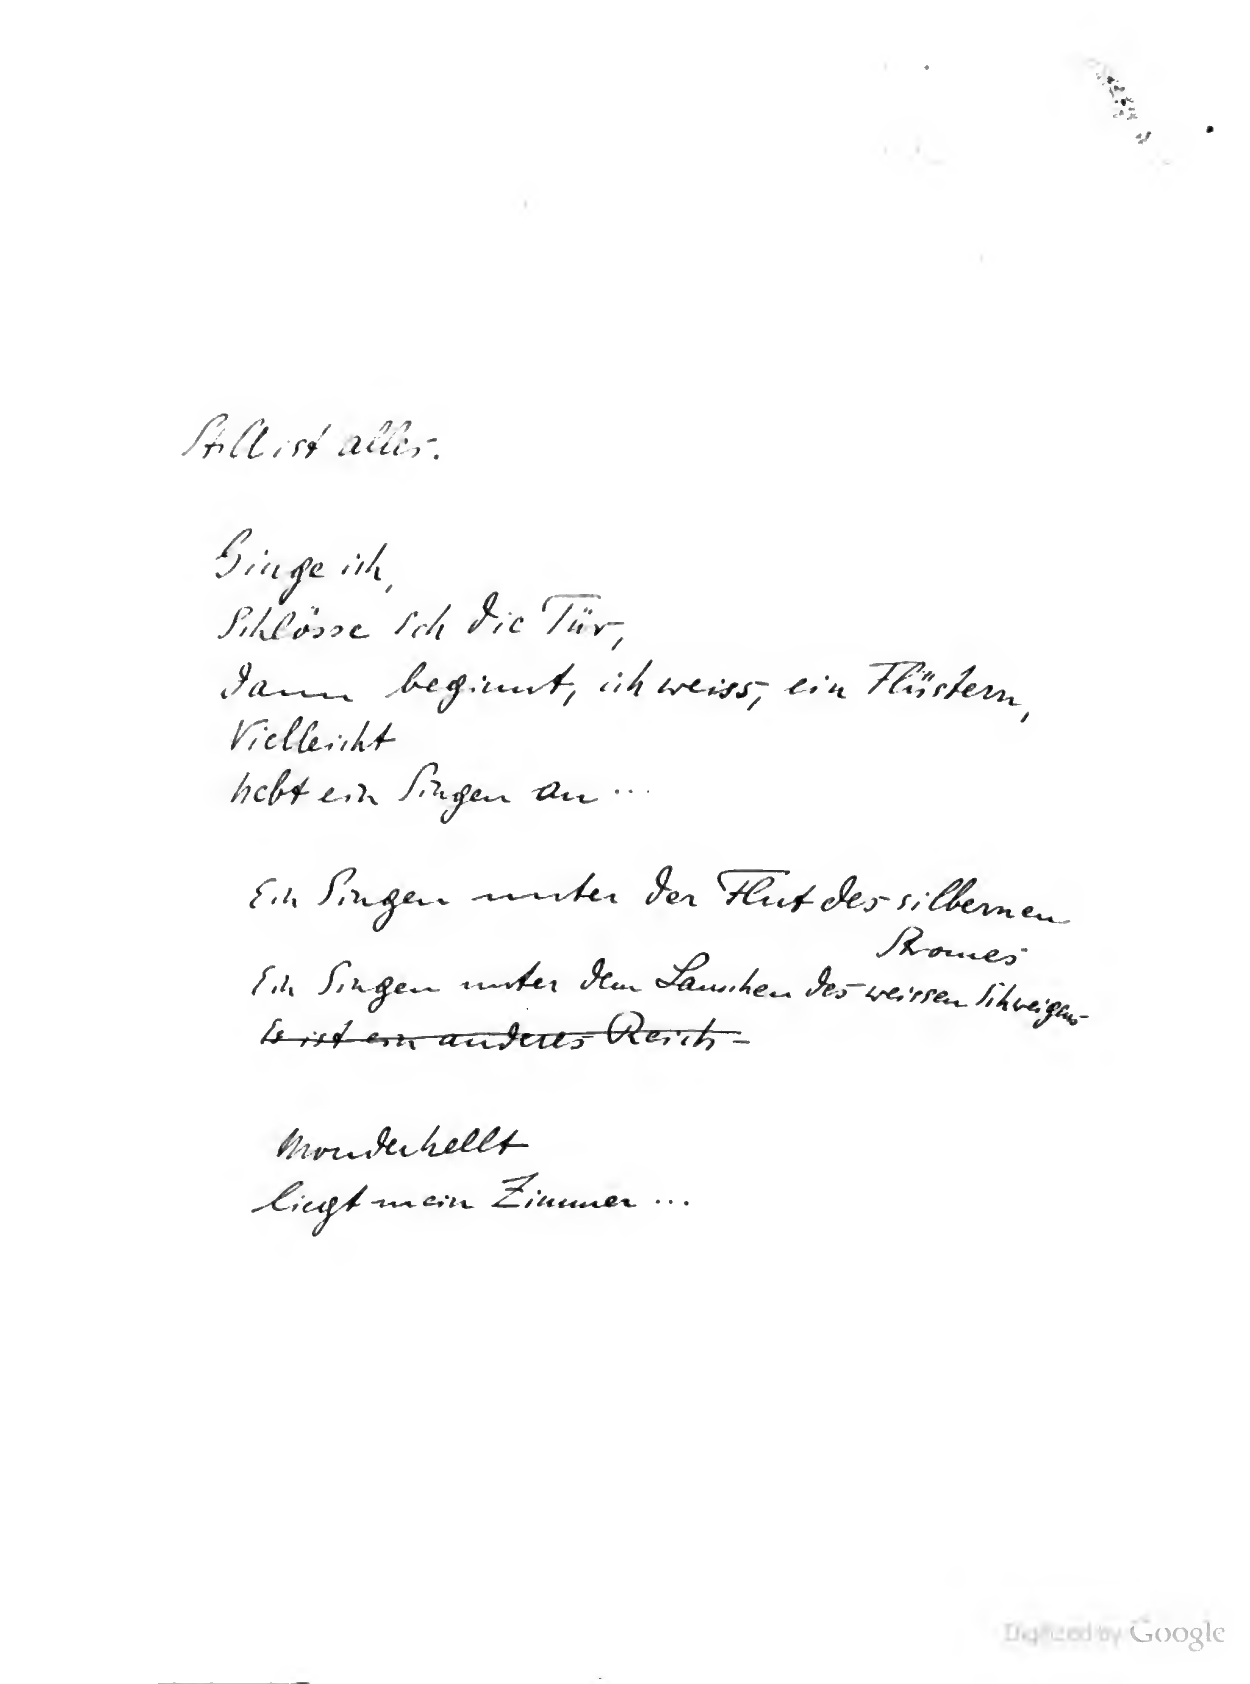 Still ist alles.
Ginge ich,
Schlösse ich die Tür,
dann beginnt, ich weiss, ein Flüstern,
Vielleicht
hebt ein Singen an ...
Ein Singen unter der Flut des silbernen
Stromes
Ein Singen unter dem Lauschen des weissen Schweigens
Es ist ein anderes Reich –
Monderhellt
liegt mein Zimmer ...
Digitized by Google